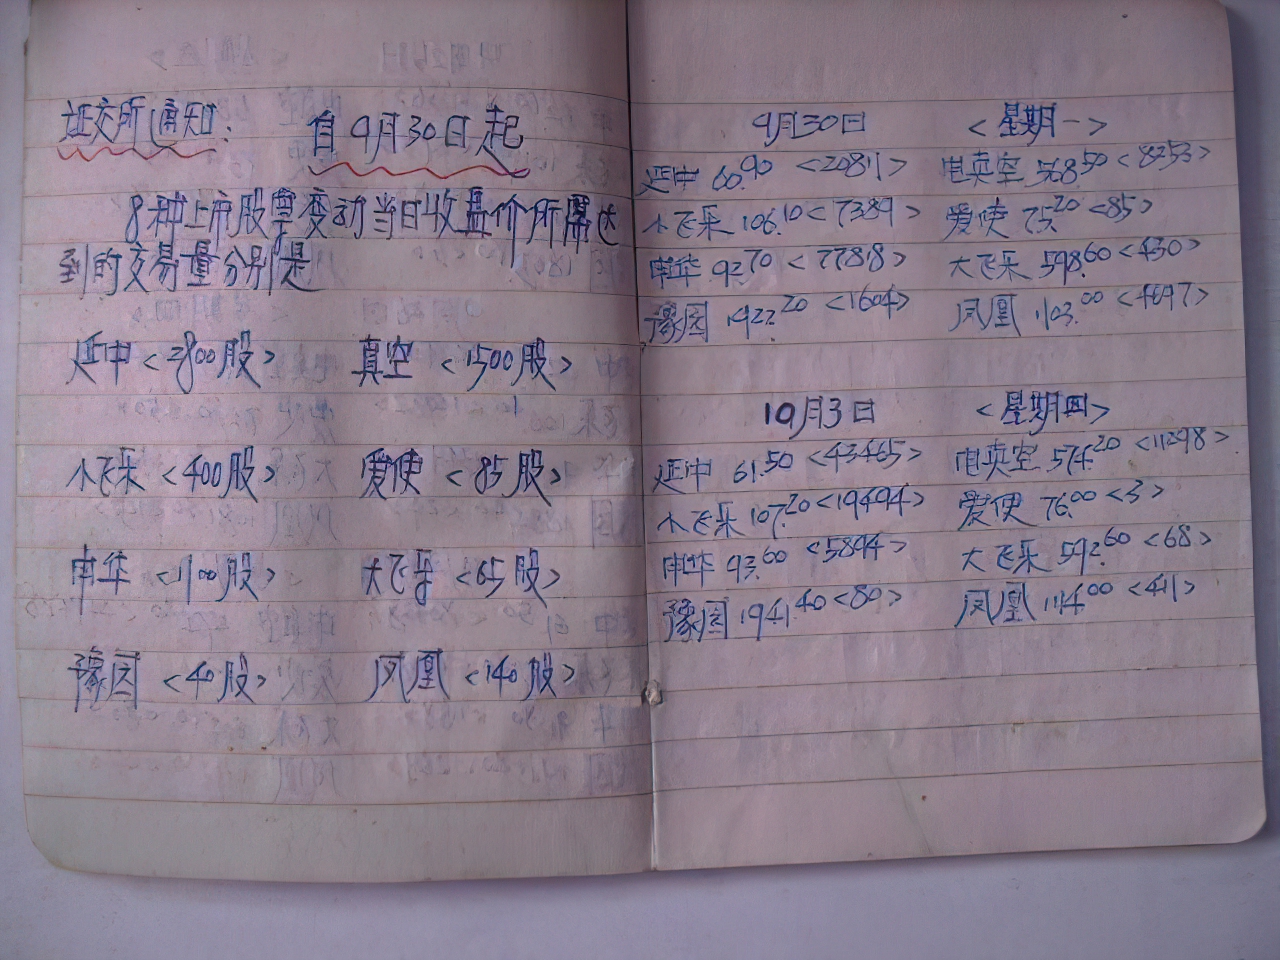 证交所通知: 自9月30日起
8种上市股票变动当日收盘价所需达
到的交易量分别是
延中<2800股> 真空<1500股>
小飞乐<400股> 爱使<85股>
申华<1100股> 大飞乐<65股>
豫园<40股> 凤凰<140股>
9月30日 <星期一>
延中 60.90 <20811> 电真空 568.50 <8253>
小飞乐 106.10 <7389> 爱使 75.20 <85>
申华 92.70 <7788> 大飞乐 598.60 <430>
豫园 1922.20 <1604> 凤凰 103.00 <4697>
10月3日 <星期四>
延中 61.50 <43465> 电真空 574.20 <11298>
小飞乐 107.20 <19494> 爱使 76.00 <3>
申华 93.60 <5894> 大飞乐 592.60 <68>
豫园 1941.40 <80> 凤凰 104.00 <41>